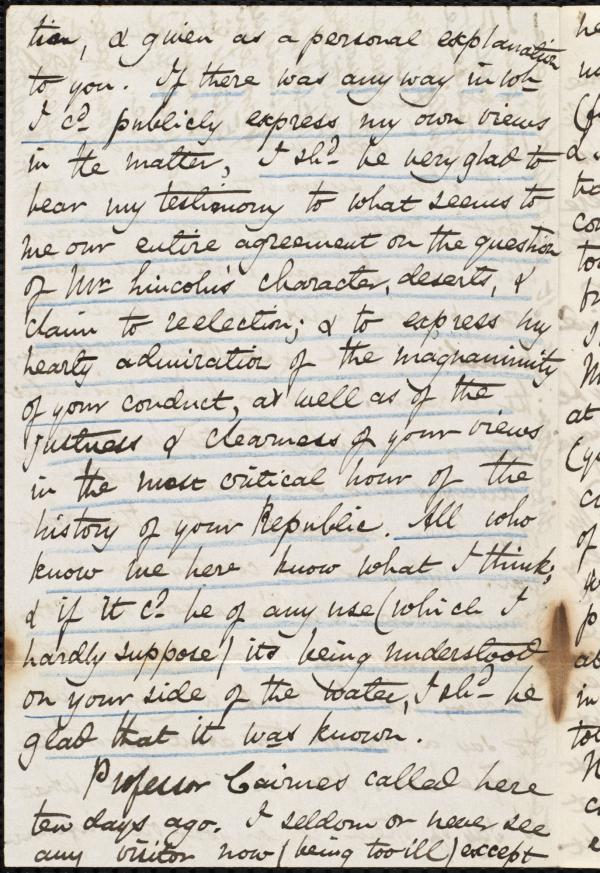 tion, & given as a personal explanation
to you. If there was any way in wh
I cd publicly express my own views
in the matter, I shd be very glad to
bear my testimony to what seems to
me our entire agreement on the question
of Mr Lincoln's character, deserts, &
claim to reelection; & to express my
hearty admiration of the magnanimity
of your conduct, as well as of the
justness & clearness of your views
in the most critical hour of the
history of your Republic. All who
know me here know what I think;
& if it cd be of any use (which I
hardly suppose) its being understood
on your side of the water, I shd be
glad that it was known.
Professor Cairnes called here
ten days ago. I seldom or never see
any visitor now (being too ill) except